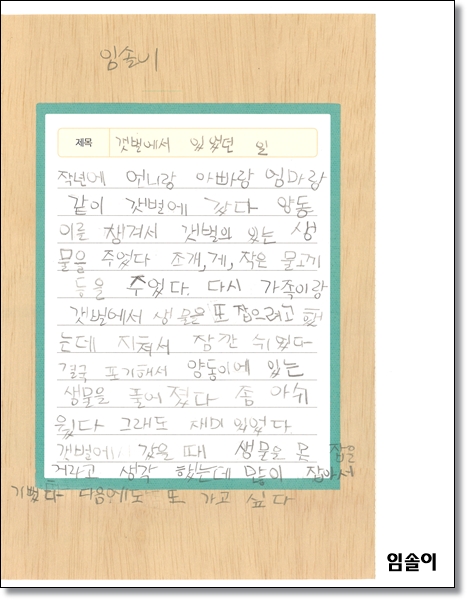 임솔이
제목 갯벌에서 있었던 일
작년에 언니랑 아빠랑 엄마랑
같이 갯벌에 갔다 양동
이를 챙겨서 갯벌의 있는 생
물을 주었다 조개,게,작은 물고기
등을 주었다. 다시 가족이랑
갯벌에서 생물을 또 잡으려고 했
는데 지쳐서 잠깐 쉬었다
결국 포기해서 양동이에 있는
생물을 풀어 줬다 좀 아쉬
웠다 그래도 재미 있었다.
갯벌에 갔을 때 생물을 못 잡을
거라고 생각 했는데 많이 잡아서
기뻤다 다음에도 또 가고 싶다
임솔이